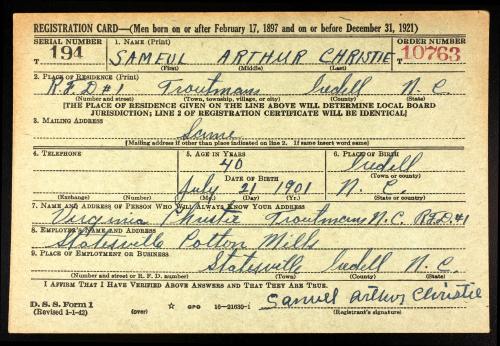 REGISTRATION CARD—(Men born on or after February 17, 1897 and on or before December 31, 1921)
SERIAL NUMBER 1. NAME (Print) ORDER NUMBER
T 194 SAMEUL ARTHUR CHRISTIE T 10763
(First) (Middle) (Last)
2. PLACE OF RESIDENCE (Print)
R.F.D #1 Troutmans Iredell N. C.
(Number and street) (Town, township, village, or city) (County) (State)
[THE PLACE OF RESIDENCE GIVEN ON THE LINE ABOVE WILL DETERMINE LOCAL BOARD
JURISDICTION; LINE 2 OF REGISTRATION CERTIFICATE WILL BE IDENTICAL]
3. MAILING ADDRESS
Same
[Mailing address if other than place indicated on line 2. If same insert word same]
4. TELEPHONE 5. AGE IN YEARS 6. PLACE OF BIRTH
40 Iredell
DATE OF BIRTH (Town or county)
July 21 1901 N. C.
(Exchange) (Number) (Mo.) (Day) (Yr.) (State or country)
7. NAME AND ADDRESS OF PERSON WHO WILL ALWAYS KNOW YOUR ADDRESS
Virginia Christie Troutmans N.C. R.F.D. #1
8. EMPLOYER'S NAME AND ADDRESS
Statesville Cotton Mills
9. PLACE OF EMPLOYMENT OR BUSINESS
Statesville Iredell N. C.
(Number and street or R. F. D. number) (Town) (County) (State)
I AFFIRM THAT I HAVE VERIFIED ABOVE ANSWERS AND THAT THEY ARE TRUE.
Samuel Arthur Christie
D. S. S. Form 1
(Revised 1-1-42) (over) ☆ GPO 16-21630-1 (Registrant's signature)